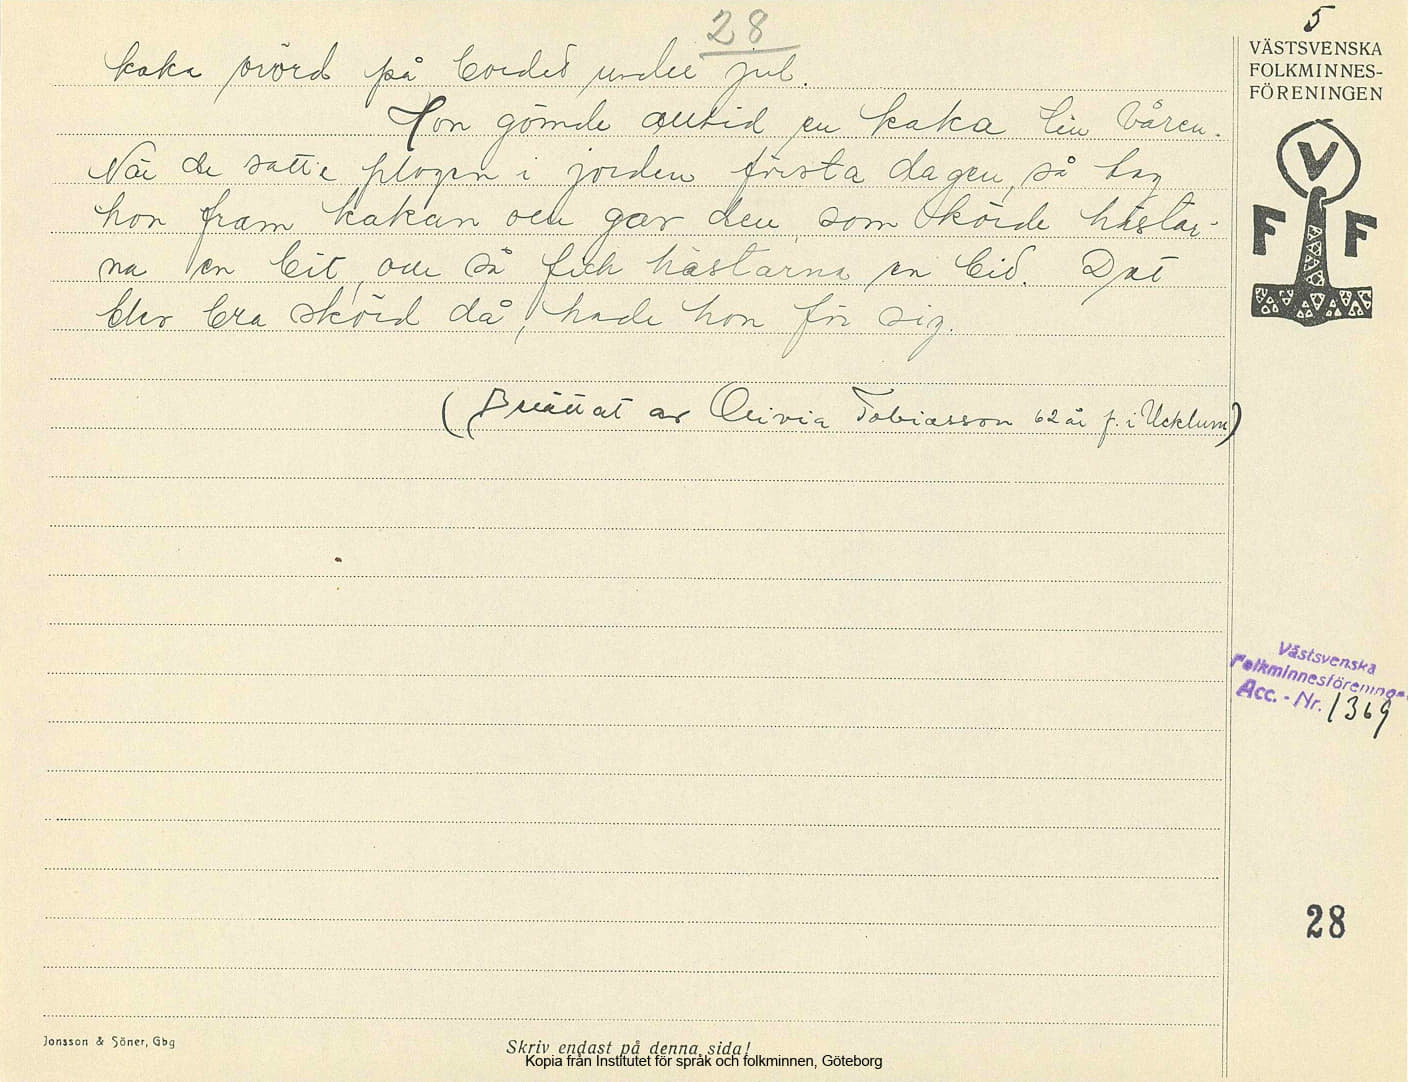 28
5
VÄSTSVENSKA
FOLKMINNES-
FÖRENINGEN
kaka orörd på bordet under jul.
Hon gömde alltid en kaka till våren.
När de satte plogen i jorden första dagen, så tog
hon fram kakan och gav den, som körde hästar-
na en bit, och så fick hästarna en bit. Det
blev bra skörd då, hade hon för sig.
(Berättat av Olivia Tobiasson 62 år f. i Ucklum)
V
F F
Västsvenska
Folkminnesföreningen
Acc. - Nr. 1369
28
Jonsson & Söner, Gbg
Skriv endast på denna sida!
Kopia från Institutet för språk och folkminnen, Göteborg